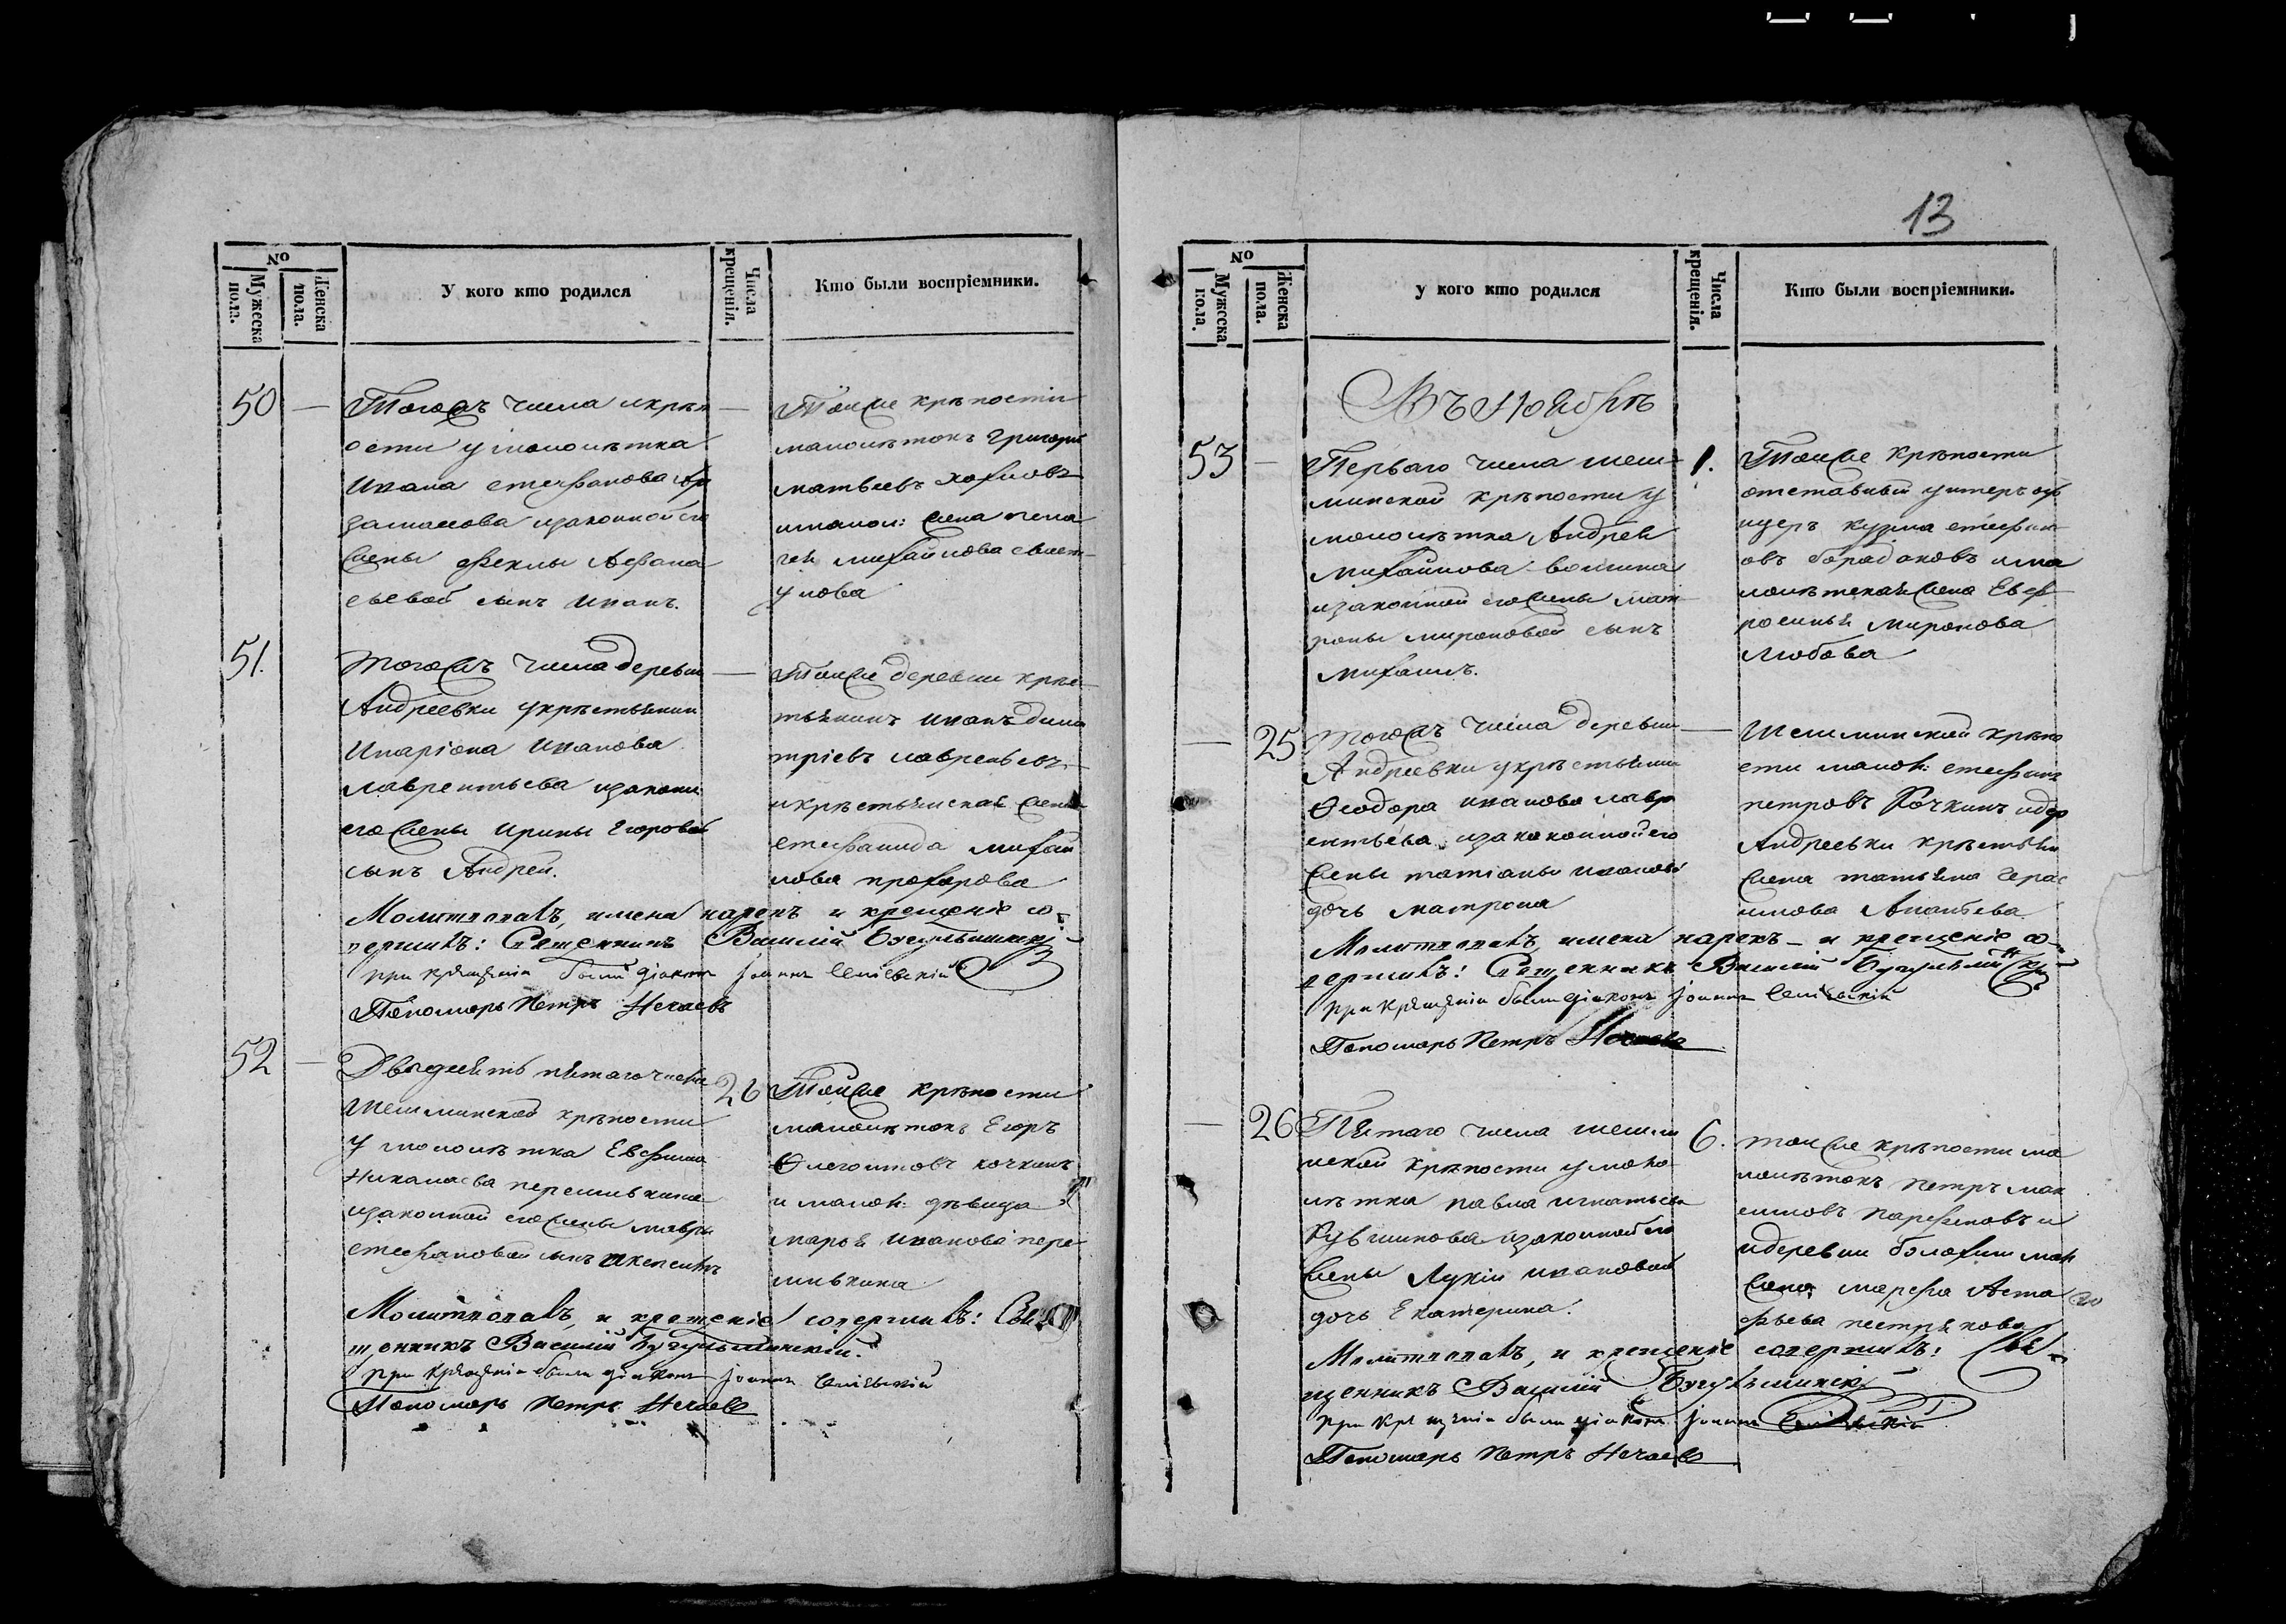 №
Мужеска пола.
Женска пола.
У кого кто родился
Числа крещенія.
Кто были воспріемники.
50 —
Тогожъ числа икрѣп
ости умалолѣтка
Ивана стефанова
изаконной его
жены феклы Афона
сьевой сынъ Иванъ.
—
Тоиже крѣпости
малолѣтокъ Григорій
матвеевъ
ималол: жена пела
геи михайлова
51.
тогожъ числа деревни
Андреевки укрѣстьянин
Иларіона Иванова
лаврентьева изаконн
его жены Ирины Егоровой
сынъ Андрей.
—
Тоиже деревни крѣс
тьянинъ иванъ дими
тріевъ лаврентьевъ
икрѣстьянская жена
стефанида михаи
лова прохорова
Молитвовалъ, имена нарекъ и крещеніе со-
вершилъ: Священникъ Василій Бугульминскій
при крещеніи были діаконъ Іоаннъ
Пономарь Петръ Нечаевъ
52 —
Двадцеть пятаго числа
Шешминской крѣпости
у малолѣтка Евфима
Николаева перешивкина
изаконной его жены мавры
стефановой сынъ
26
Тоиже крѣпости
малолѣтокъ Егоръ
кочкинъ
и малол: дѣвица
марья иванова пере
шивкина
Молитвовалъ, и крещеніе совершилъ: Свя
щенникъ Василій Бугульминскій.
при крещеніи были діаконъ Іоаннъ
Пономарь Петръ Нечаевъ
13
№
Мужеска пола.
Женска пола.
у кого кто родился
Числа крещенія.
Кто были воспріемники.
Въ Ноябрѣ
53 —
Перваго числа шеш-
минской крѣпости у
малолѣтка Андрея
Михайлова волгина
изаконной его жены мат
роны мироновой сынъ
михаилъ.
1.
Тоиже крѣпости
отставный унтеръ оф
ицеръ кузма стефан
овъ борадоковъ има
лолѣтская жена Евф
росинья миронова
Любова
— 25
тогожъ числа деревни
Андреевки укрѣстьянин
Ѳеодора иванова лавр
ентьева изаконной его
жены татіаны ивановой
дочь матрона
—
Шешминской крѣпо
сти малол: стефанъ
петровъ Кочкинъ идер
Андреевки крѣстьян
жена татьяна герас
имова
Молитвовалъ, имена нарекъ и крещеніе со-
вершилъ: Священникъ Василій Бугульминскій
при крещеніи были діаконъ Іоаннъ
Пономарь Петръ Нечаевъ
— 26
Пятаго числа шешми
нской крѣпости умало-
лѣтка павла игнатьева
Кувшинова изаконной его
жены Лукіи ивановой
дочь Екатерина.
6.
тоиже крѣпости ма
лолѣтокъ петръ мак
симовъ парфеновъ и
идеревни
жена марфа Аста
фьева пестрякова
Молитвовалъ, и крещеніе совершилъ: Свя-
щенникъ Василій Бугульминскій
при крещеніи были діаконъ Іоаннъ
Пономарь Петръ Нечаевъ